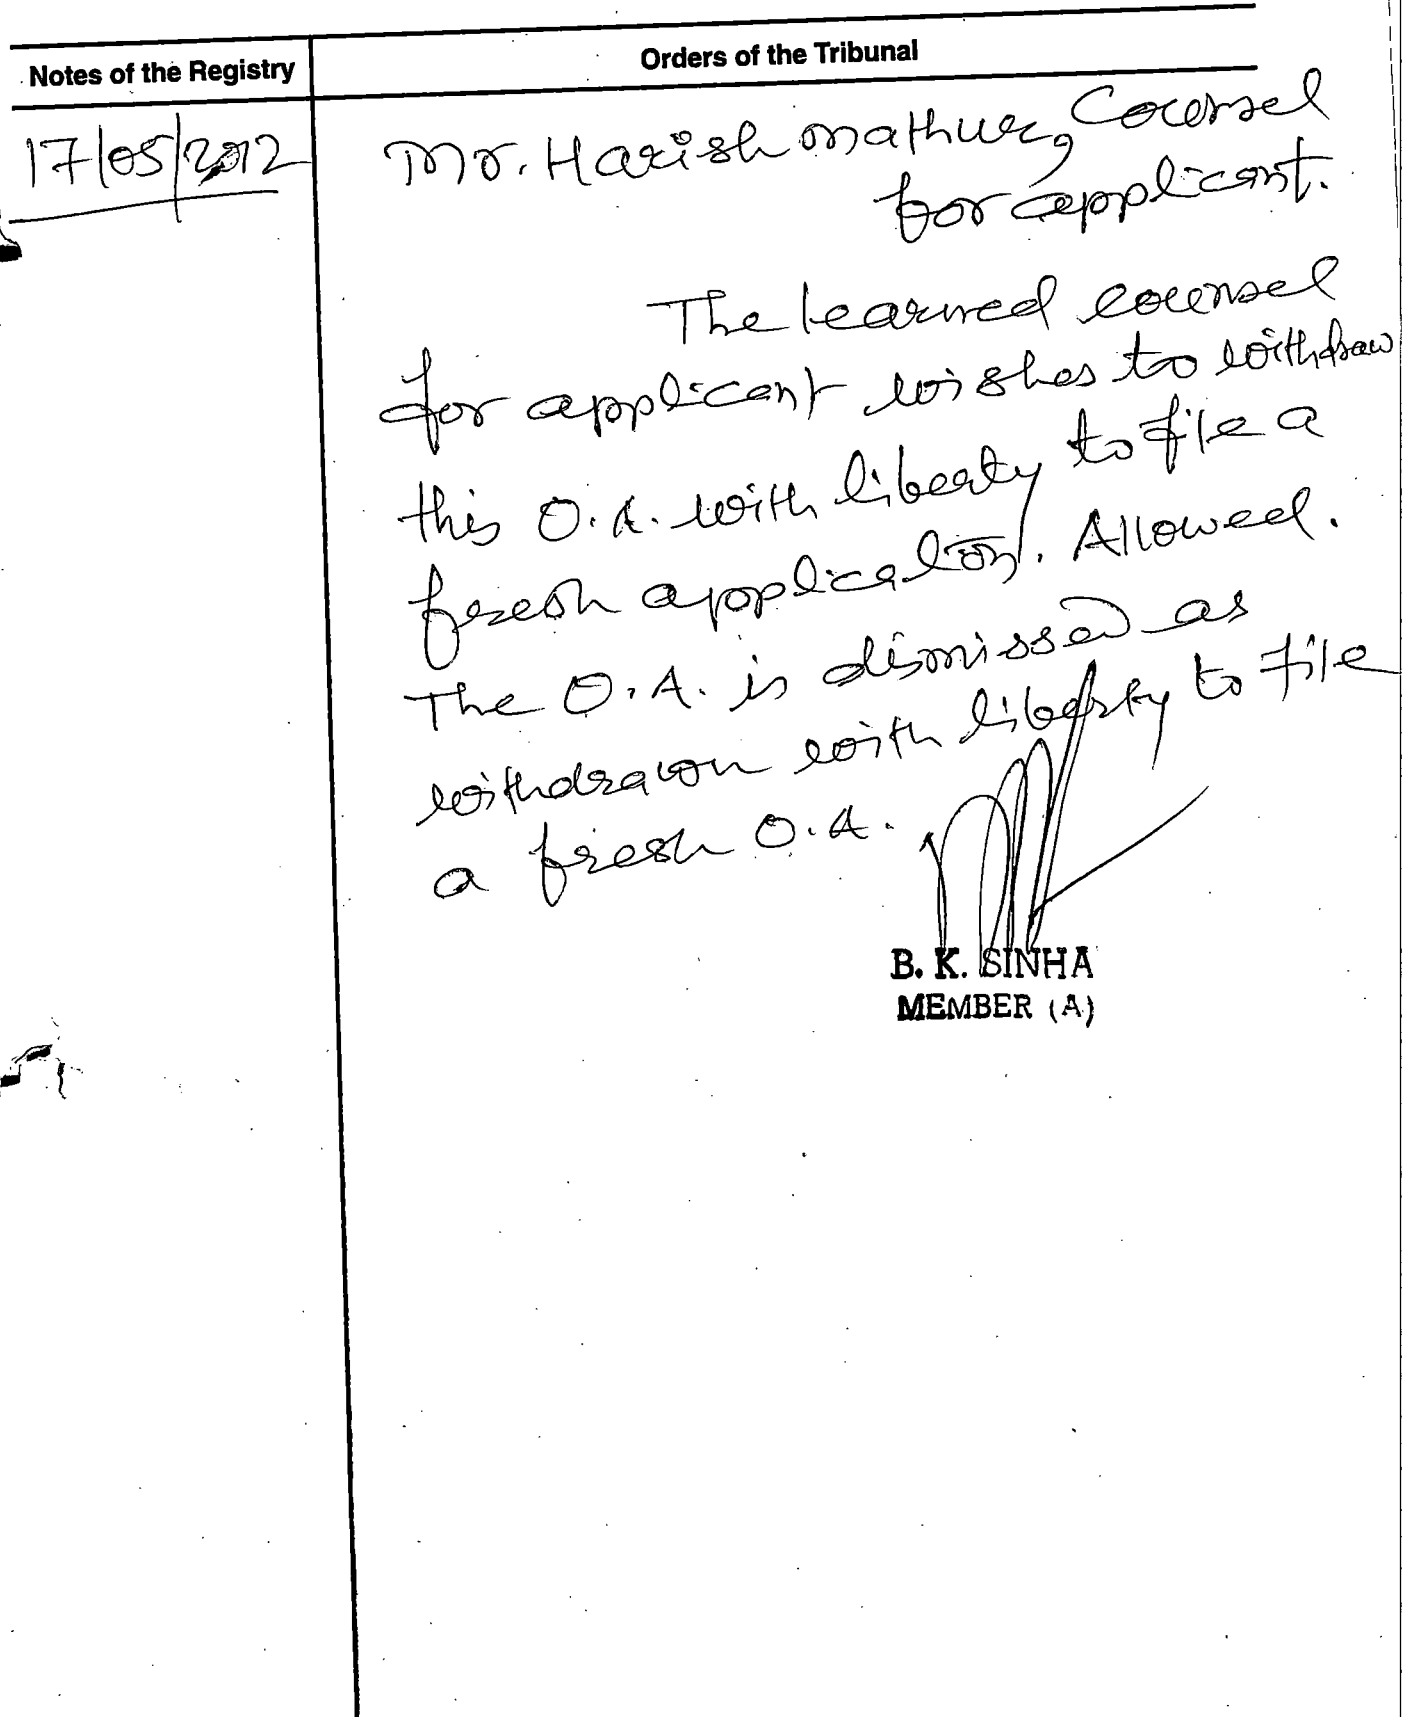 Notes of the Registry
Orders of the Tribunal
17/05/2012
Mr. Harish Mathur, Counsel
for applicant.
The learned counsel
for applicant wishes to withdraw
this O.A. with liberty to file a
fresh application. Allowed.
The O.A. is dismissed as
withdrawn with liberty to file
a fresh O.A.
B. K. SINHA
MEMBER (A)